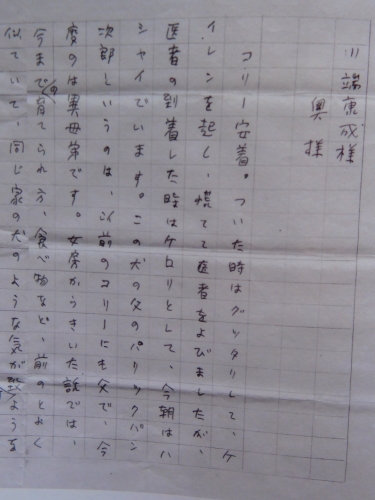 川端康成様
奥様
コリー安着。ついた時はグッタリして、ケ
イレンを起し、慌てて医者をよびましたが、
医者の到着した時はケロリとして、今朝はハ
シャイでいます。この犬の父のパリックバン
次郎というのは、以前のコリーにも父で、今
度のは異母弟です。女房からきいた話では、
今までの育てられ方、食べ物など、前のとよく
似ていて、同じ家の犬のような気が